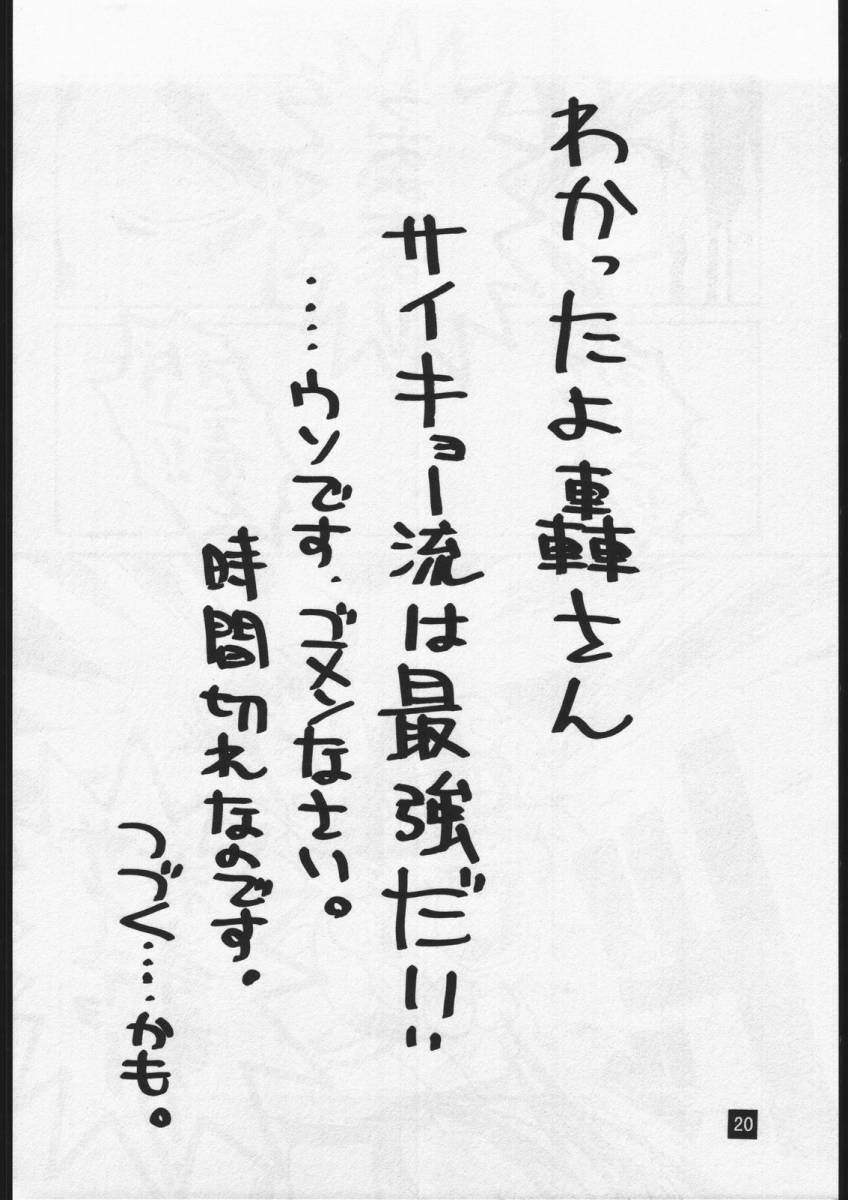 わかったよ轟さん
サイキョー流は最強だ!!
……ウソです、ゴメンなさい。
時間切れなのです。
つづく……かも。
20